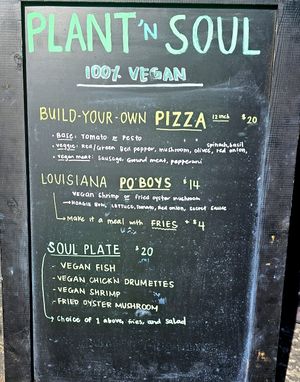 PLANT 'N SOUL
100% VEGAN
BUILD-YOUR-OWN PIZZA 12 inch $20
• Base: Tomato or Pesto
• veggie: Red/Green Bell pepper, mushroom, olives, red onion, spinach, basil
• vegan meat: Sausage, Ground meat, pepperoni
LOUISIANA PO'BOYS $14
vegan shrimp or fried oyster mushroom
→ HOAGIE BUN, LETTUCE, tomato, red onion, secret sauce
→ Make it a meal with FRIES + $4
SOUL PLATE $20
- VEGAN FISH
- VEGAN CHICK'N DRUMETTES
- VEGAN SHRIMP
- FRIED OYSTER MUSHROOM
→ Choice of 1 above, fries, and salad